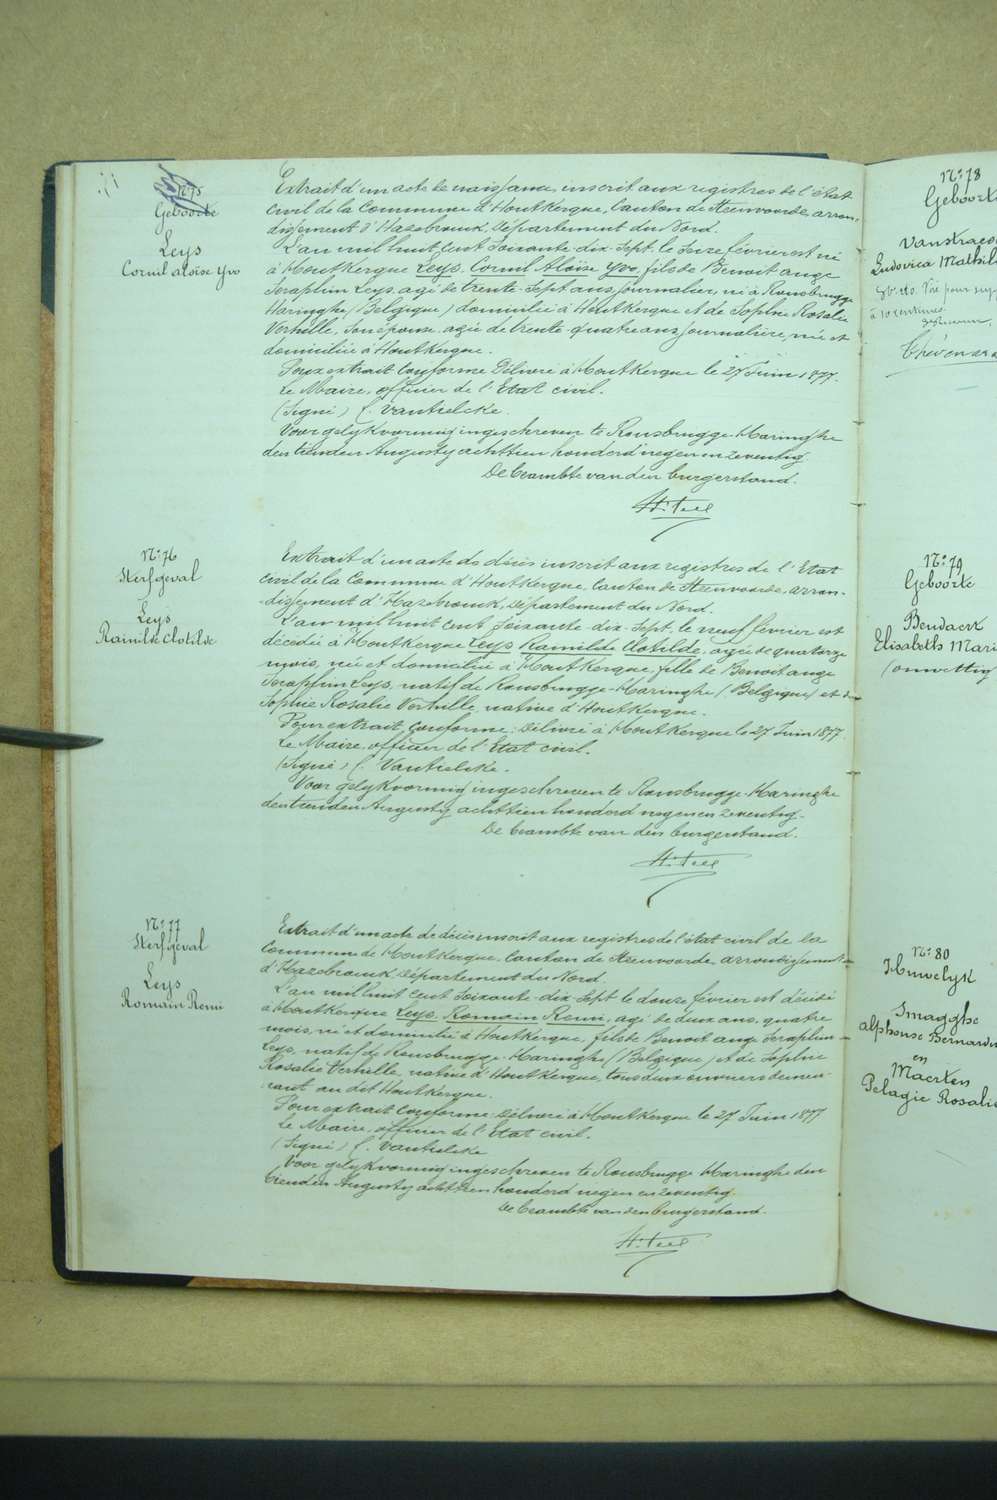 N:75
Geboorte
Leys
Cornil aloïse Yvo
Extrait d'un acte de naissance inscrit aux registres de l'état
civil de la Commune d'Houtkerque, Canton de Steenvoorde, arron-
dissement d'Hazebrouck, Département du Nord.
L'an mil huit cent soixante-dix-sept, le seize février est né
à Houtkerque Leys, Cornil Aloïse Yvo, fils de Benoit ange
Seraphin Leys, agé de trente-sept ans, journalier, né à Rousbrugge
Haringhe (Belgique) domicilié à Houtkerque et de Sophie Rosalie
Verhille, son épouse, agée de trente-quatre ans, journalière, née et
domiciliée à Houtkerque.
Pour extrait Conforme Délivré à Houtkerque le 27 Juin 1877.
Le Maire, officier de l'Etat civil.
(Signé) C. Vantielcke.
Voor gelykvormig ingeschreven te Rousbrugge-Haringhe
den tienden Augusty achttien honderd negen en zeventig.
De beambte van den burgerstand.
N:76
Sterfgeval
Leys
Ramilde Clotilde
Extrait d'un acte de décès inscrit aux registres de l'Etat
civil de la Commune d'Houtkerque, Canton de Steenvoorde, arron-
dissement d'Hazebrouck, Département du Nord.
L'an mil huit cent soixante-dix-sept, le neuf fevrier est
décédée à Houtkerque Leys Ramilde Clotilde, agée de quatorze
mois, née et domiciliée à Houtkerque, fille de Benoit ange
Seraphin Leys, natif de Rousbrugge-Haringhe (Belgique) et de
Sophie Rosalie Verhille, native d'Houtkerque.
Pour extrait Conforme: Délivré à Houtkerque le 27 Juin 1877.
Le Maire, officier de l'Etat civil.
(Signé) C. Vantielcke.
Voor gelykvormig ingeschreven te Rousbrugge-Haringhe
den tienden Augusty achttien honderd negen en zeventig.
De beambte van den burgerstand.
N:77
Sterfgeval
Leys
Romain Remi
Extrait d'un acte de décès inscrit aux registres de l'état civil de la
Commune de Houtkerque, Canton de Steenvoorde arrondissement
d'Hazebrouck Département du Nord.
L'an mil huit cent soixante-dix-sept le douze février est décédé
à Houtkerque Leys, Romain Remi, agé de deux ans, quatre
mois, né et domicilié à Houtkerque, fils de Benoit ange Seraphin
Leys, natif de Rousbrugge-Haringhe (Belgique) et de Sophie
Rosalie Verhille, native d'Houtkerque, tous deux ouvriers demeu-
rant au dit Houtkerque.
Pour extrait Conforme: Délivré à Houtkerque le 27 Juin 1877
Le Maire, officier de l'Etat civil.
(Signé) C. Vantielcke
Voor gelykvormig ingeschreven te Rousbrugge-Haringhe den
tienden Augusty achttien honderd negen en zeventig.
De beambte van den burgerstand.
N:78
Geboorte
Ludovica Mathil
à 10 centimes
N:79
Geboorte
Elisabeth Mari
(onwettig
N:80
Huwelyk
Smagghe
alphonse Bernardu
en
Maerten
Pelagie Rosalie